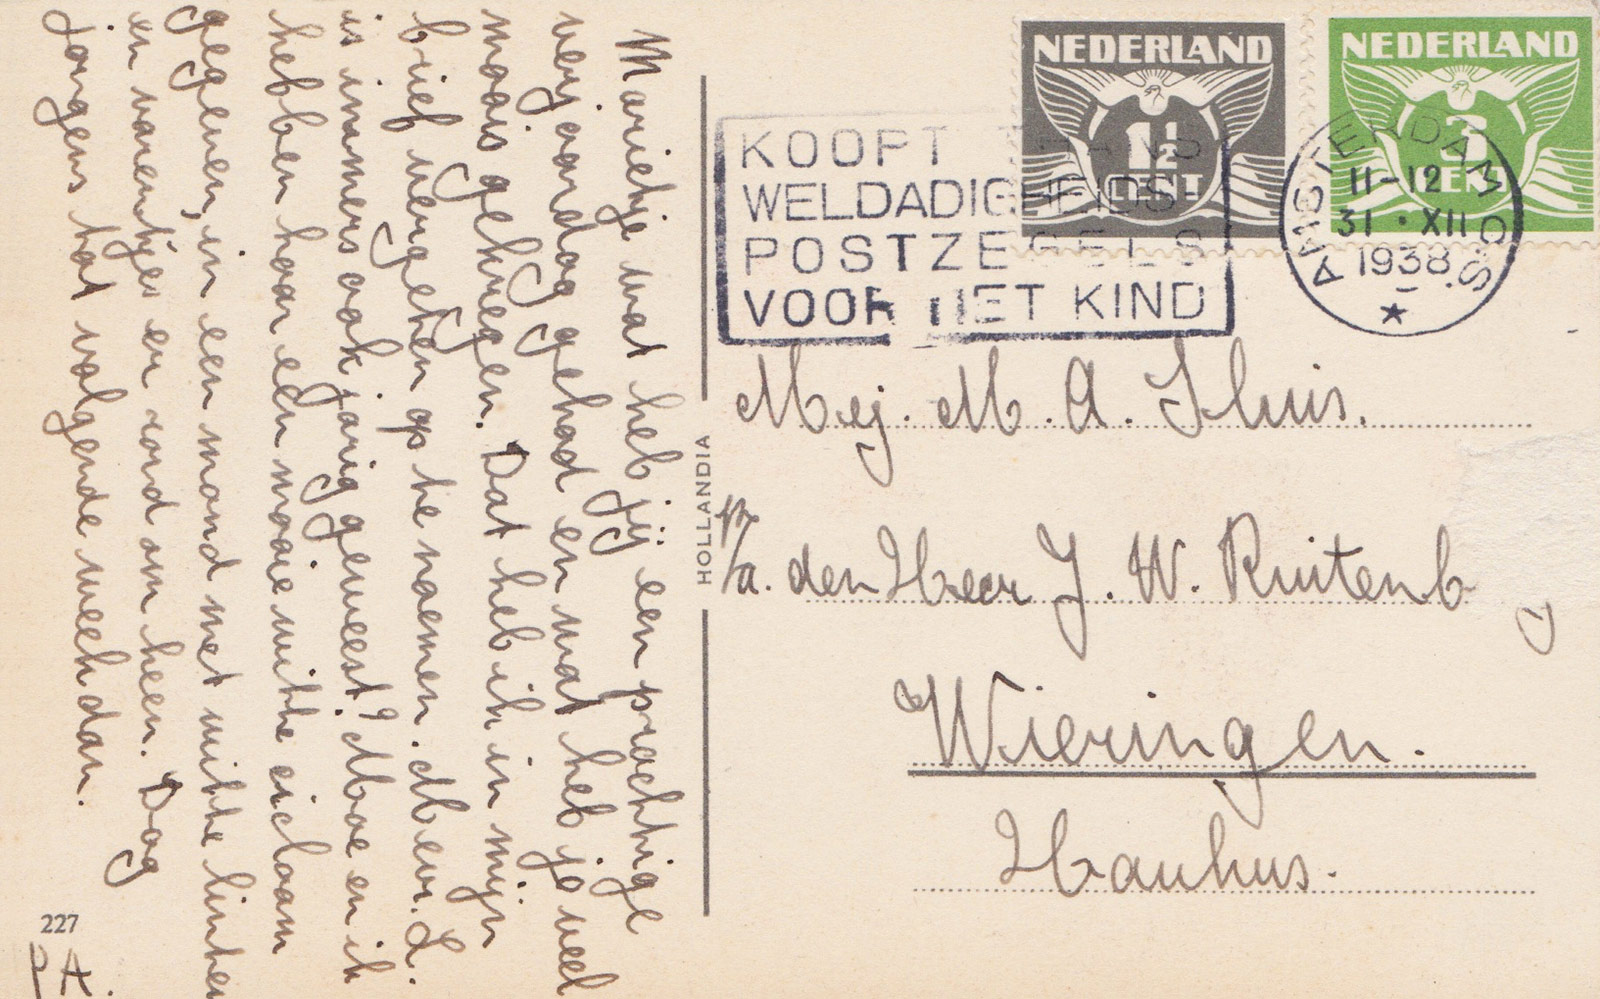 Marietje wat heb jij een prachtige
verjaardag gehad en wat heb je veel
moois gekregen. Dat heb ik in mijn
brief vergeten op te noemen. Mevr. L.
is immers ook jarig geweest? Moe en ik
hebben haar een mooie witte
gegeven, in een mand met witte linten
en varentjes er rond om heen. Dag
jongens tot volgende week dan.
227
P A.
HOLLANDIA
NEDERLAND
1½
CENT
NEDERLAND
3
CENT
KOOPT THANS
WELDADIGHEIDS
POSTZEGELS
VOOR HET KIND
AMSTERDAM C.S.
11-12
31 · XII
1938
Mej. M. A. Thuis.
p/a. den Heer J. W. Ruitenb
Wieringen.
Hauhus.